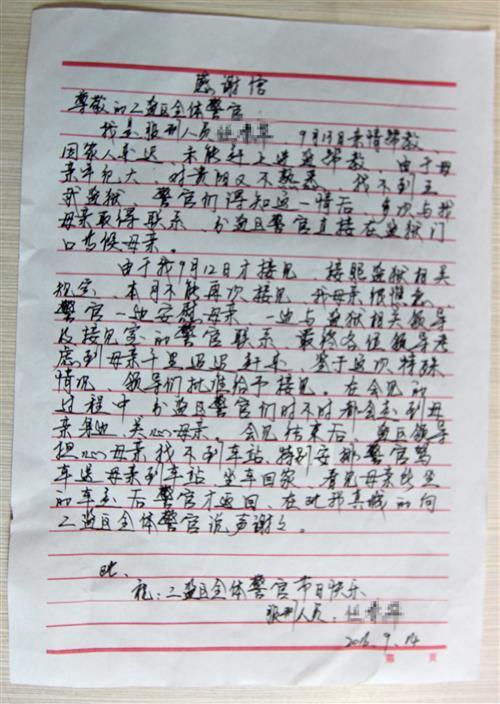 感谢信
尊敬的二监区全体警官
我是服刑人员 9月13日亲情帮教，
因家人来迟，未能赶上进监帮教，由于母
亲年纪大，对贵阳又不熟悉，找不到王
武监狱，警官们得知这一情后，多次与我
母亲取得联系，分监区警官直接在监狱门
口等候母亲。
由于我9月12日才接见，按照监狱相关
规定，本月不能再次接见，我母亲很焦急，
警官一边安慰母亲，一边与监狱相关领导
及接见室的警官联系，最终各位领导考
虑到母亲千里迢迢赶来，鉴于这次特殊
情况，领导们批准给予接见。在会见的
过程中分监区警官们时不时都会去到母
亲身边，关心母亲。会见结束后，监区领导
担心母亲找不到车站，特别安排警官驾
车送母亲到车站坐车回家，看见母亲所坐
的车走后警官才返回，在此我真诚的向
二监区全体警官说声谢谢。
此，
祝：二监区全体警官节日快乐
服刑人员：
2016.9.14
第 页